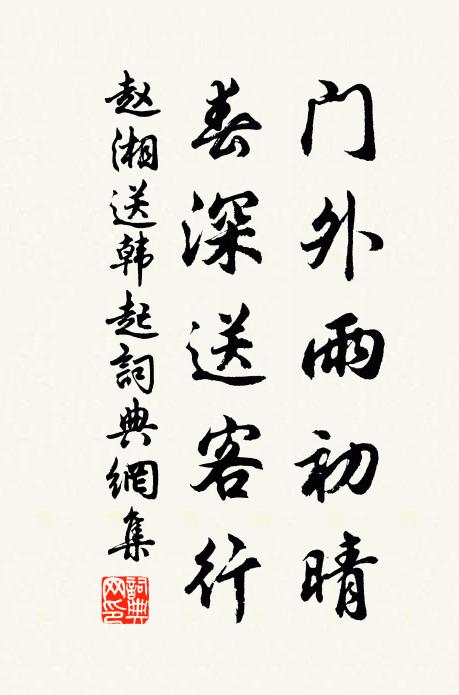 门外雨初晴
春深送客行
赵湘送韩起詞典網集
詞典網印